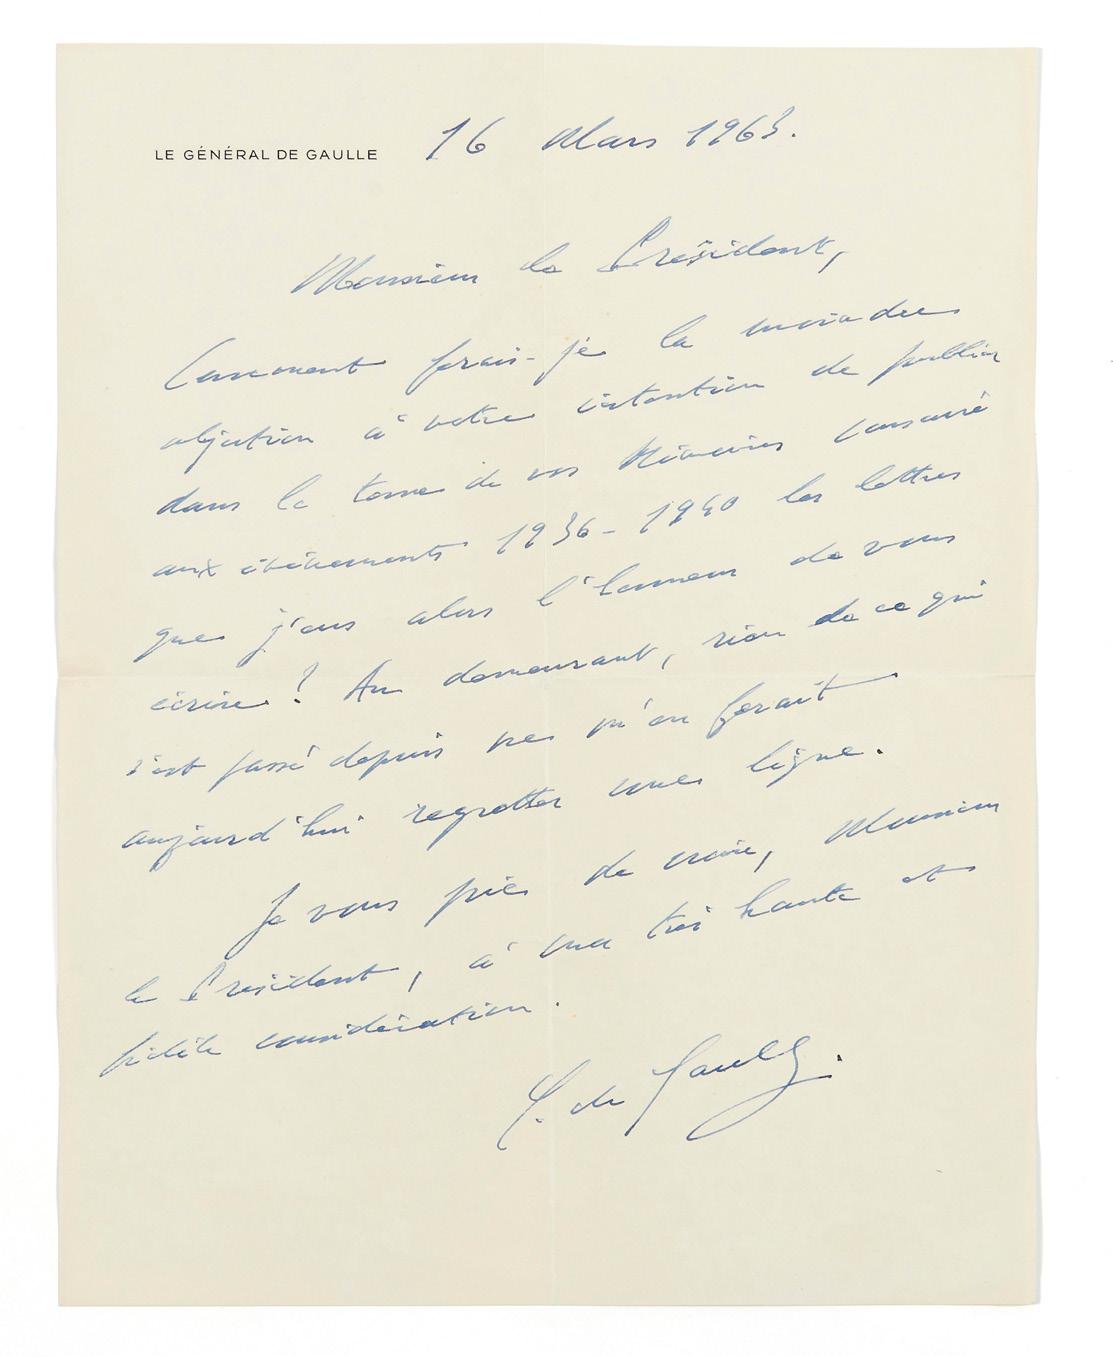 LE GÉNÉRAL DE GAULLE
16 Mars 1963.
Monsieur le Président,
Comment ferais-je la moindre
objection à votre intention de publier
dans le tome de vos Mémoires consacré
aux événements 1936-1940 les lettres
que j'eus alors l'honneur de vous
écrire ! Au demeurant, rien de ce qui
s'est passé depuis ne m'en ferait
aujourd'hui regretter une ligne.
Je vous prie de croire, Monsieur
le Président, à ma très haute et
fidèle considération.
C. de Gaulle.